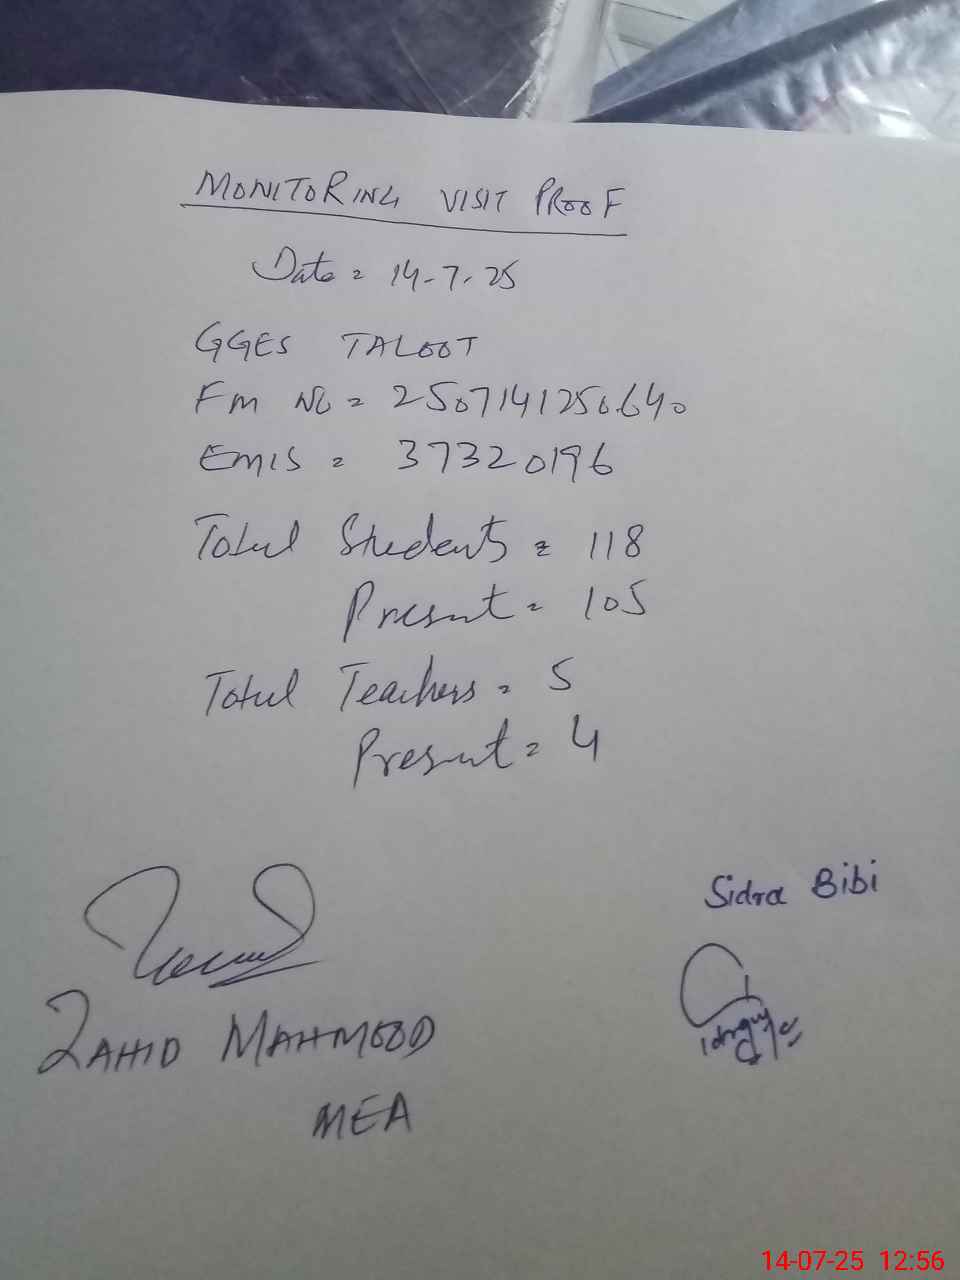 MONITORING VISIT PROOF
Date = 14-7-25
GGES TALOOT
Fm No = 2507141250640
EMIS = 37320196
Total Students = 118
Present = 105
Total Teachers = 5
Present = 4
Sidra Bibi
ZAHID MAHMOOD
MEA
14-07-25 12:56